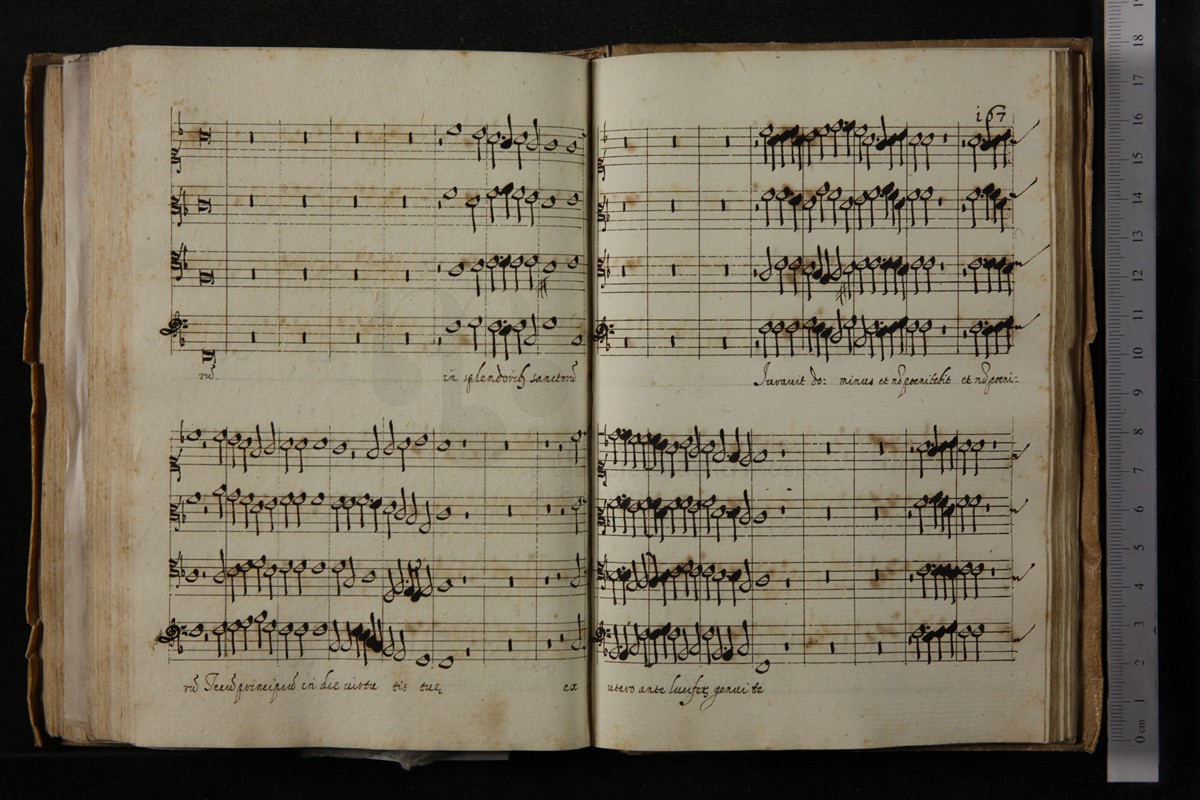 167
rũ. in splendoriƀ sanctorũ
Juravit do: minus et nõ penitebit et nõ peni:
rũ Tecũ principiũ in die virtu tis tuę ex
utero ante lucifeȝ genui te
0 cm 1 2 3 4 5 6 7 8 9 10 11 12 13 14 15 16 17 18